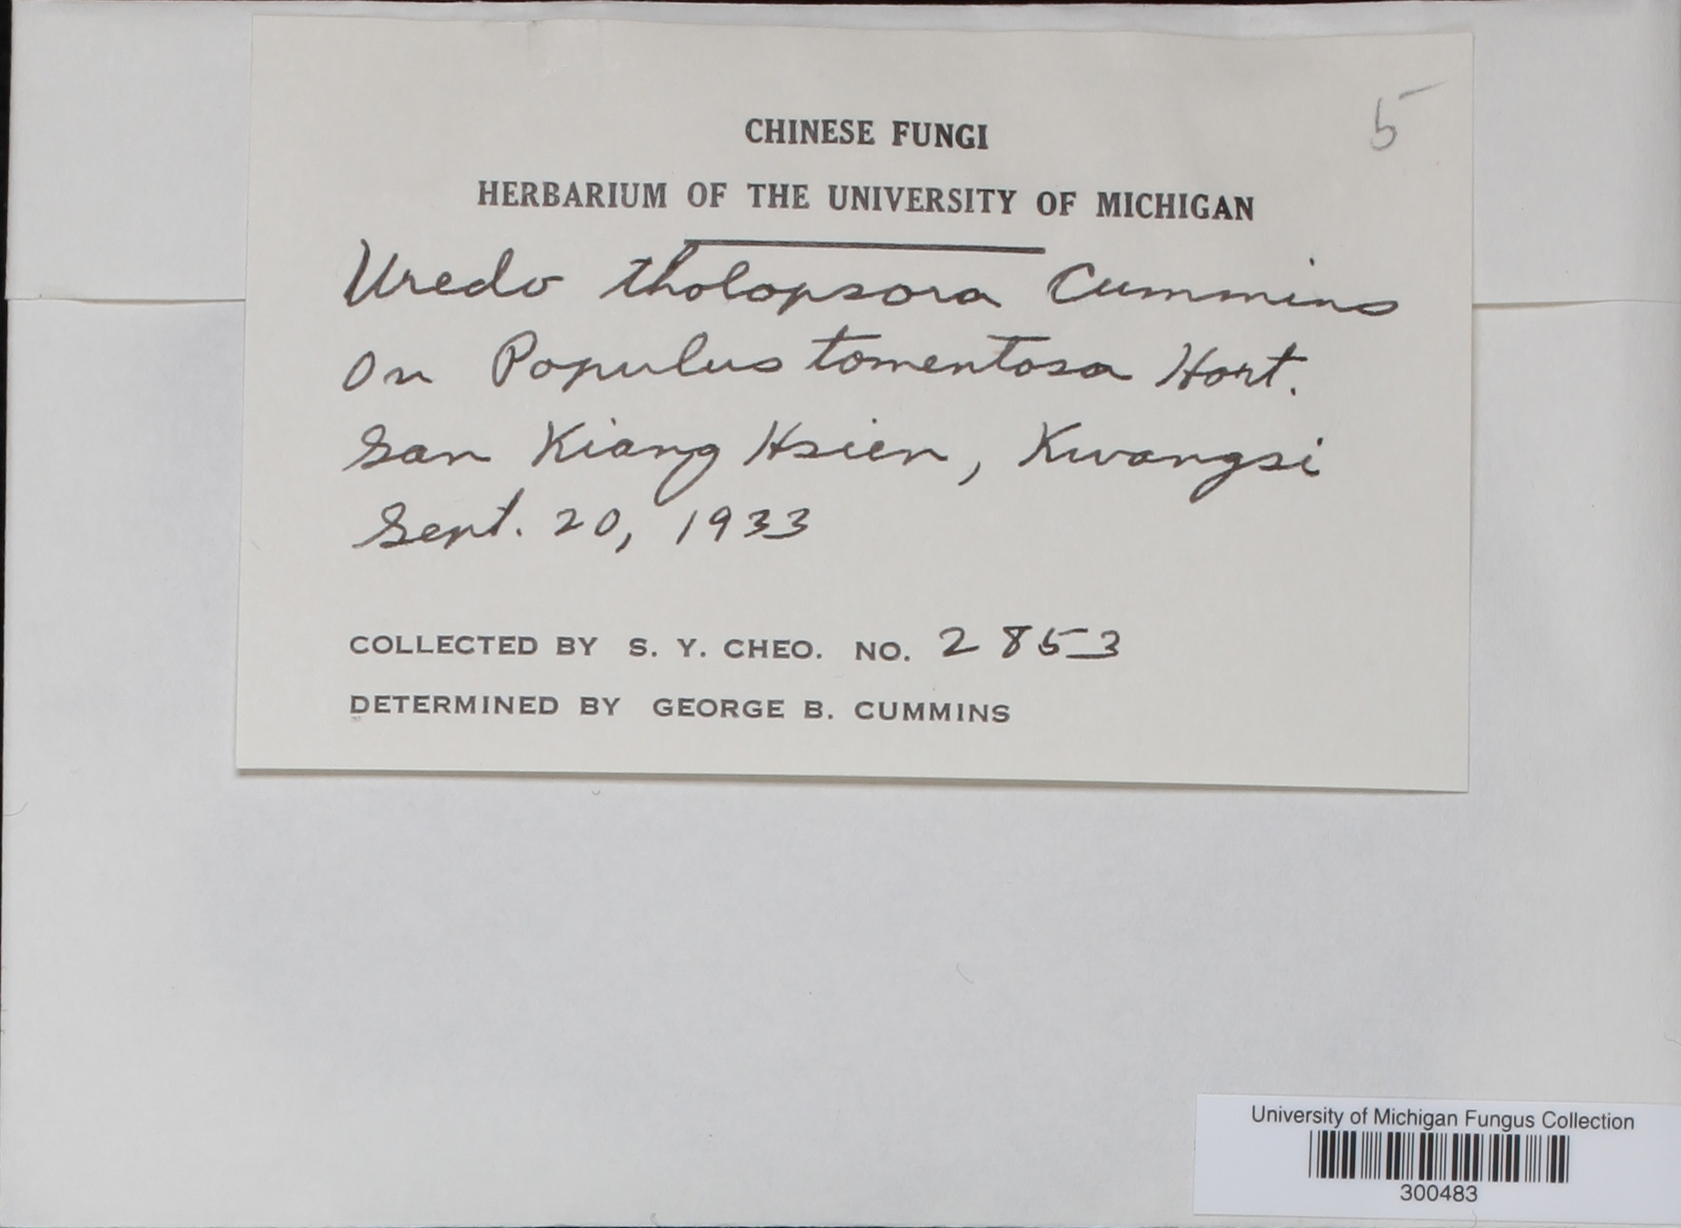 5
CHINESE FUNGI
HERBARIUM OF THE UNIVERSITY OF MICHIGAN
Uredo tholopsora Cummins
On Populus tomentosa Hort.
San Kiang Hsien, Kwangsi
Sept. 20, 1933
COLLECTED BY S. Y. CHEO. NO. 2853
DETERMINED BY GEORGE B. CUMMINS
University of Michigan Fungus Collection
300483